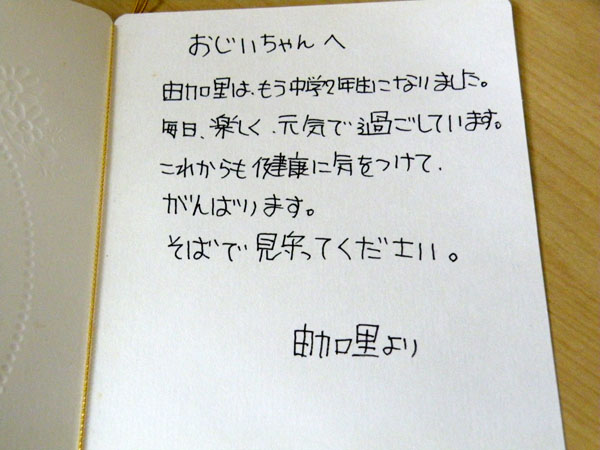 おじいちゃんへ
由加里は、もう中学2年生になりました。
毎日、楽しく、元気で過ごしています。
これからも健康に気をつけて、
がんばります。
そばで見守ってください。
由加里より